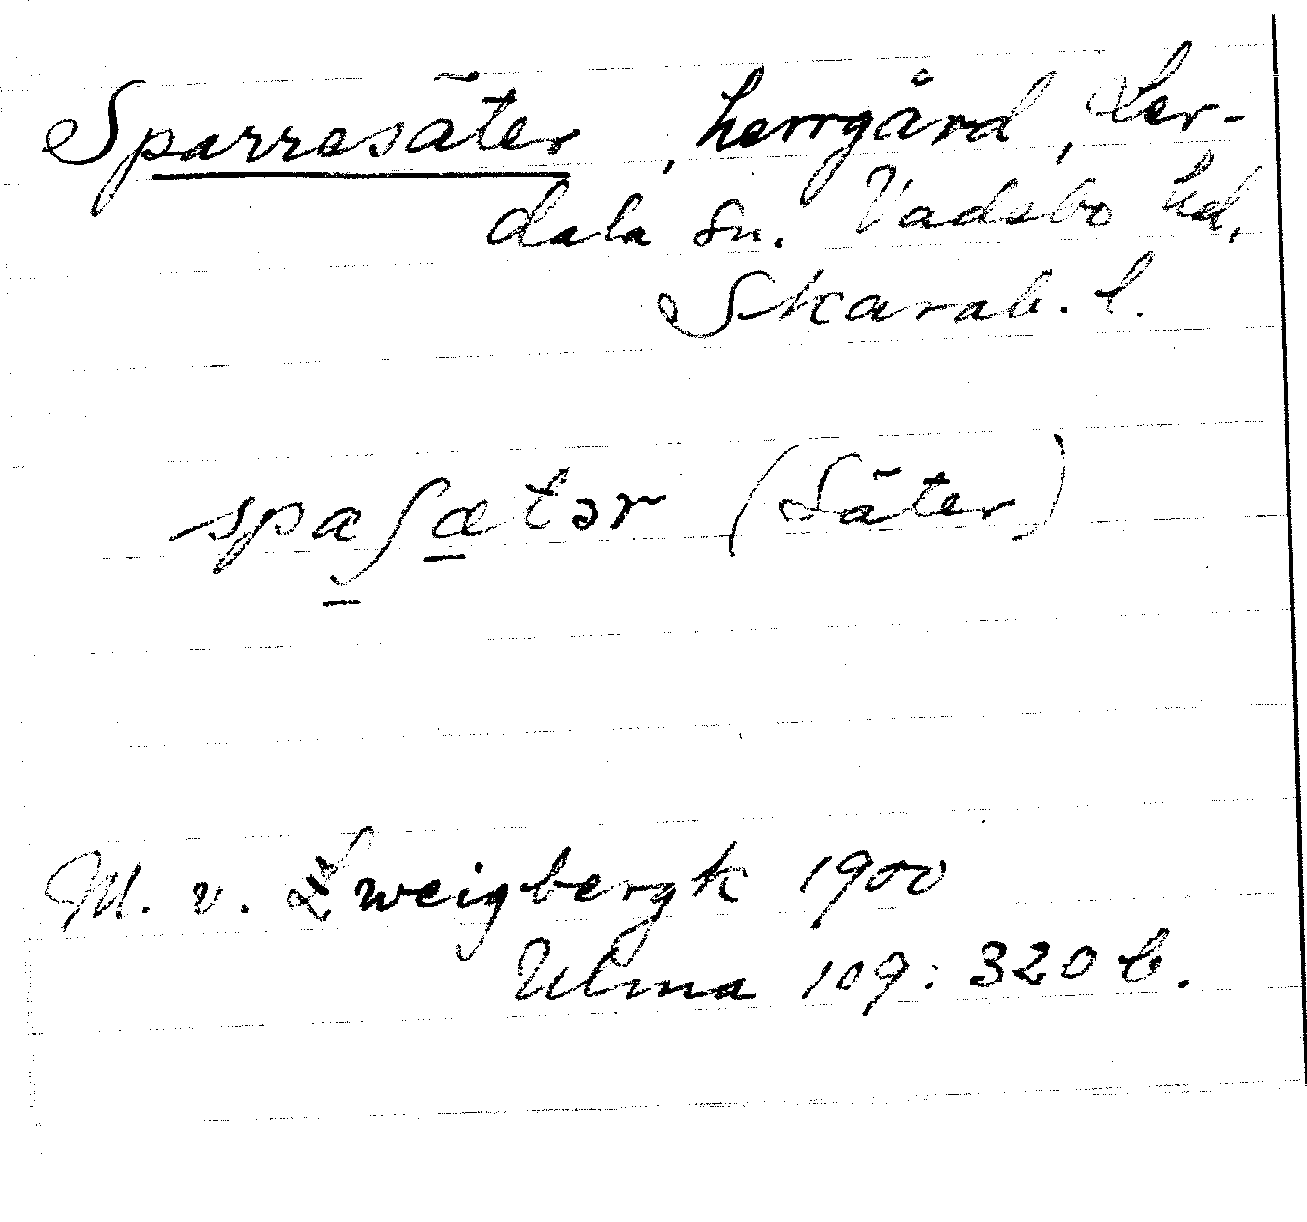 Sparresäter, herrgård, Ler-
dala sn. Vadsbo hd,
Skarab. l.
spaʃætər (Säter)
M. v. Zweigbergk 1900
Ulma 109: 320 b.